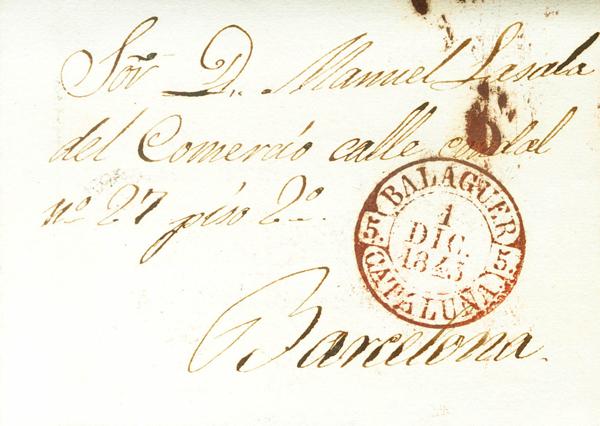 Sor. D. Manuel Lasala
del Comercio calle
nº 27 piso 2º.
BALAGUER
1
DIC.
1843
CATALUÑA
5 5
Barcelona.